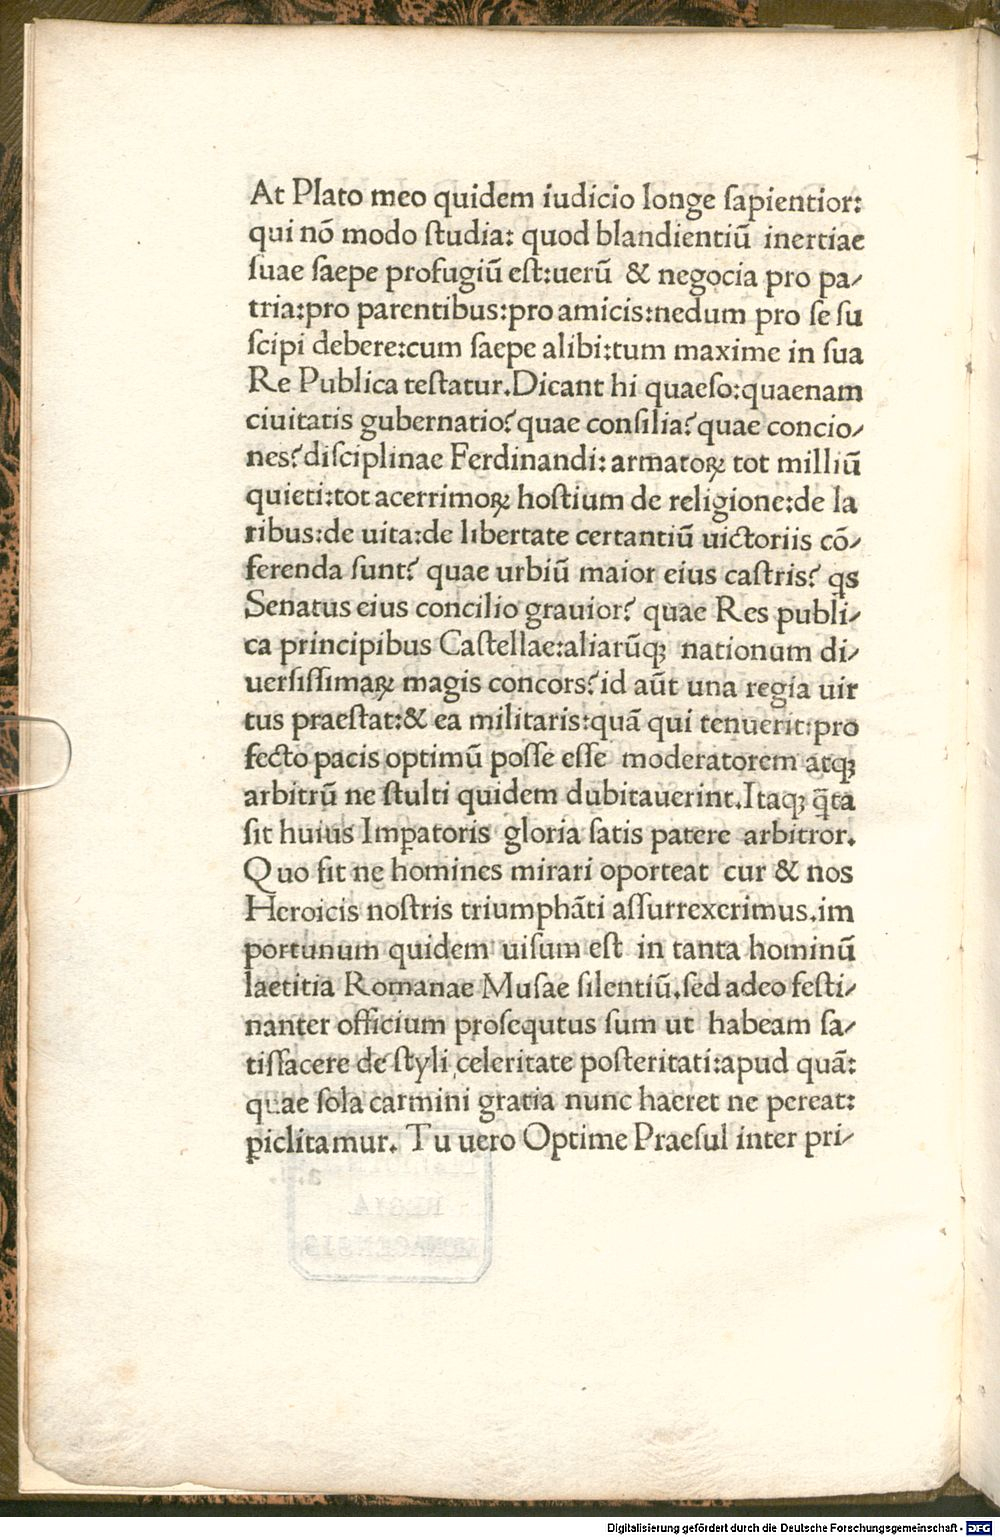 At Plato meo quidem iudicio longe ſapientior:
qui nō modo ſtudia: quod blandientiū inertiae
ſuae ſaepe profugiū eſt:uerū & negocia pro pa⸗
tria:pro parentibus:pro amicis:nedum pro ſe ſu
ſcipi debere:cum ſaepe alibi:tum maxime in ſua
Re Publica teſtatur.Dicant hi quaeſo:quaenam
ciuitatis gubernatio?quae conſilia?quae concio⸗
nes?diſciplinae Ferdinandi: armatoꝝ tot milliū
quieti:tot acerrimoꝝ hoſtium de religione:de la
ribus:de uita:de libertate certantiū uictoriis cō⸗
ferenda ſunt? quae urbiū maior eius caſtris? qs
Senatus eius concilio grauior? quae Res publi⸗
ca principibus Caſtellae:aliarūqꝫ nationum di⸗
uerſiſſimaꝝ magis concors?id aūt una regia uir
tus praeſtat:& ea militaris:quā qui tenuerit:pro
fecto pacis optimū poſſe eſſe moderatorem atqꝫ
arbitrū ne ſtulti quidem dubitauerint.Itaqꝫ q̄ta
ſit huius Imꝑatoris gloria ſatis patere arbitror.
Quo fit ne homines mirari oporteat cur & nos
Heroicis noſtris triumphāti aſſurrexerimus.im
portunum quidem uiſum eſt in tanta hominū
laetitia Romanae Muſae ſilentiū.ſed adeo feſti⸗
nanter officium proſequtus ſum ut habeam ſa⸗
tiſfacere de ſtyli celeritate poſteritati:apud quā:
quae ſola carmini gratia nunc haeret ne pereat:
ꝑiclitamur. Tu uero Optime Praeſul inter pri⸗
REGIA
MONACENSIS
Digitalisierung gefördert durch die Deutsche Forschungsgemeinschaft - DFG